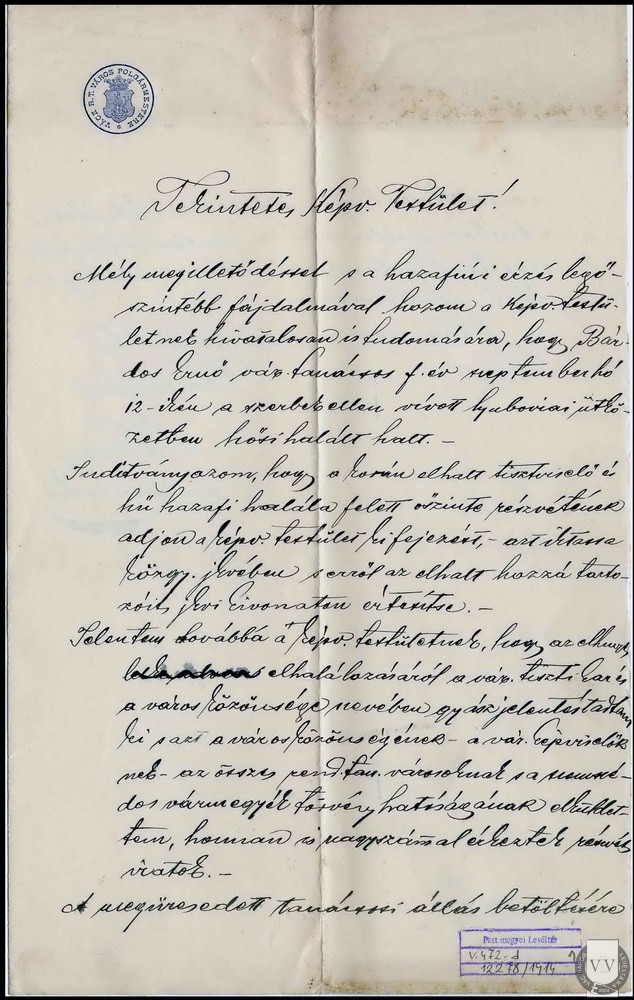 VÁCZ R.T. VÁROS POLGÁRMESTERE
Tekintetes Képv. Testület!
Mély megilletődéssel s a hazafiúi érzés legő-
szintébb fájdalmával hozom a Képv. testü-
letnek hivatalosan is tudomására, hogy Bár-
dos Ernő vár. tanácsos f. év szeptember hó
12-ikén a szerbek ellen vívott lyuboviai ütkö-
zetben hősi halált halt. –
Indítványozom, hogy a korán elhalt tisztviselő és
hű hazafi halála felett őszinte részvétének
adjon a képv. testület kifejezést, – azt iktassa
közgy. jkvében s erről az elhalt hozzá tarto-
zóit jkvi kivonaton értesítse. –
Jelentem továbbá a képv. testületnek, hogy az elhunyt
elhalálozásáról a vár. tiszti kar és
a város közönsége nevében gyászjelentést adtam
ki s azt a város közönségének – a vár. képviselők
nek – az összes rend. tan. városoknak s a
vármegyék törvényhatóságának elküldet-
tem, honnan is nagyszámmal érkeztek részvét
iratok. –
A megüresedett tanácsosi állás betöltésére
Pest megyei Levéltár
V. 472-d
12278/1914
VÁC VÁROS LEVÉLTÁRA
VV